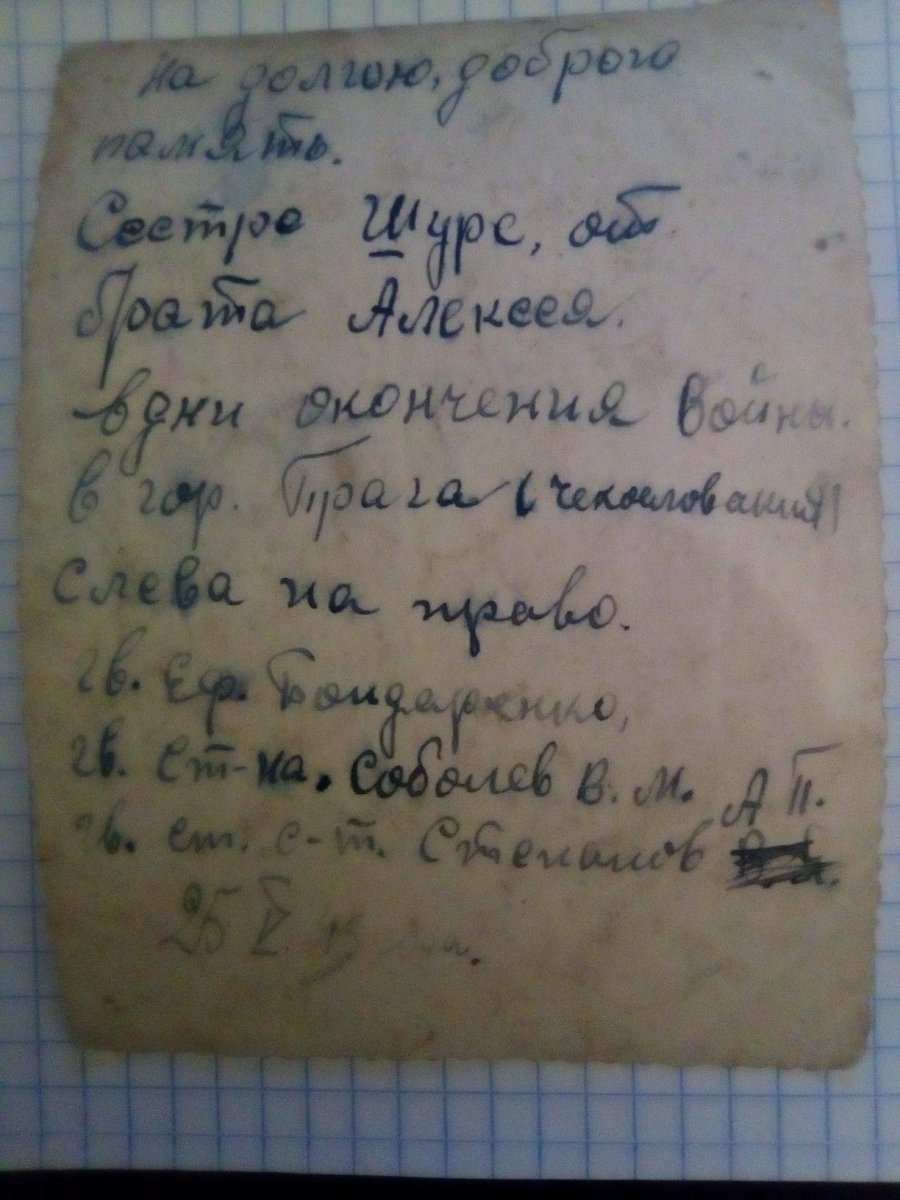 на долгою, доброго
память.
Сестре Шуре, от
брата Алексея.
в дни окончения войны.
в гор. Прага (чехословакия)
Слева на право.
гв. Еф. Бондаренко,
гв. ст-на. Соболев В. М.
гв. ст. с-т. Степанов А П.
25 V.